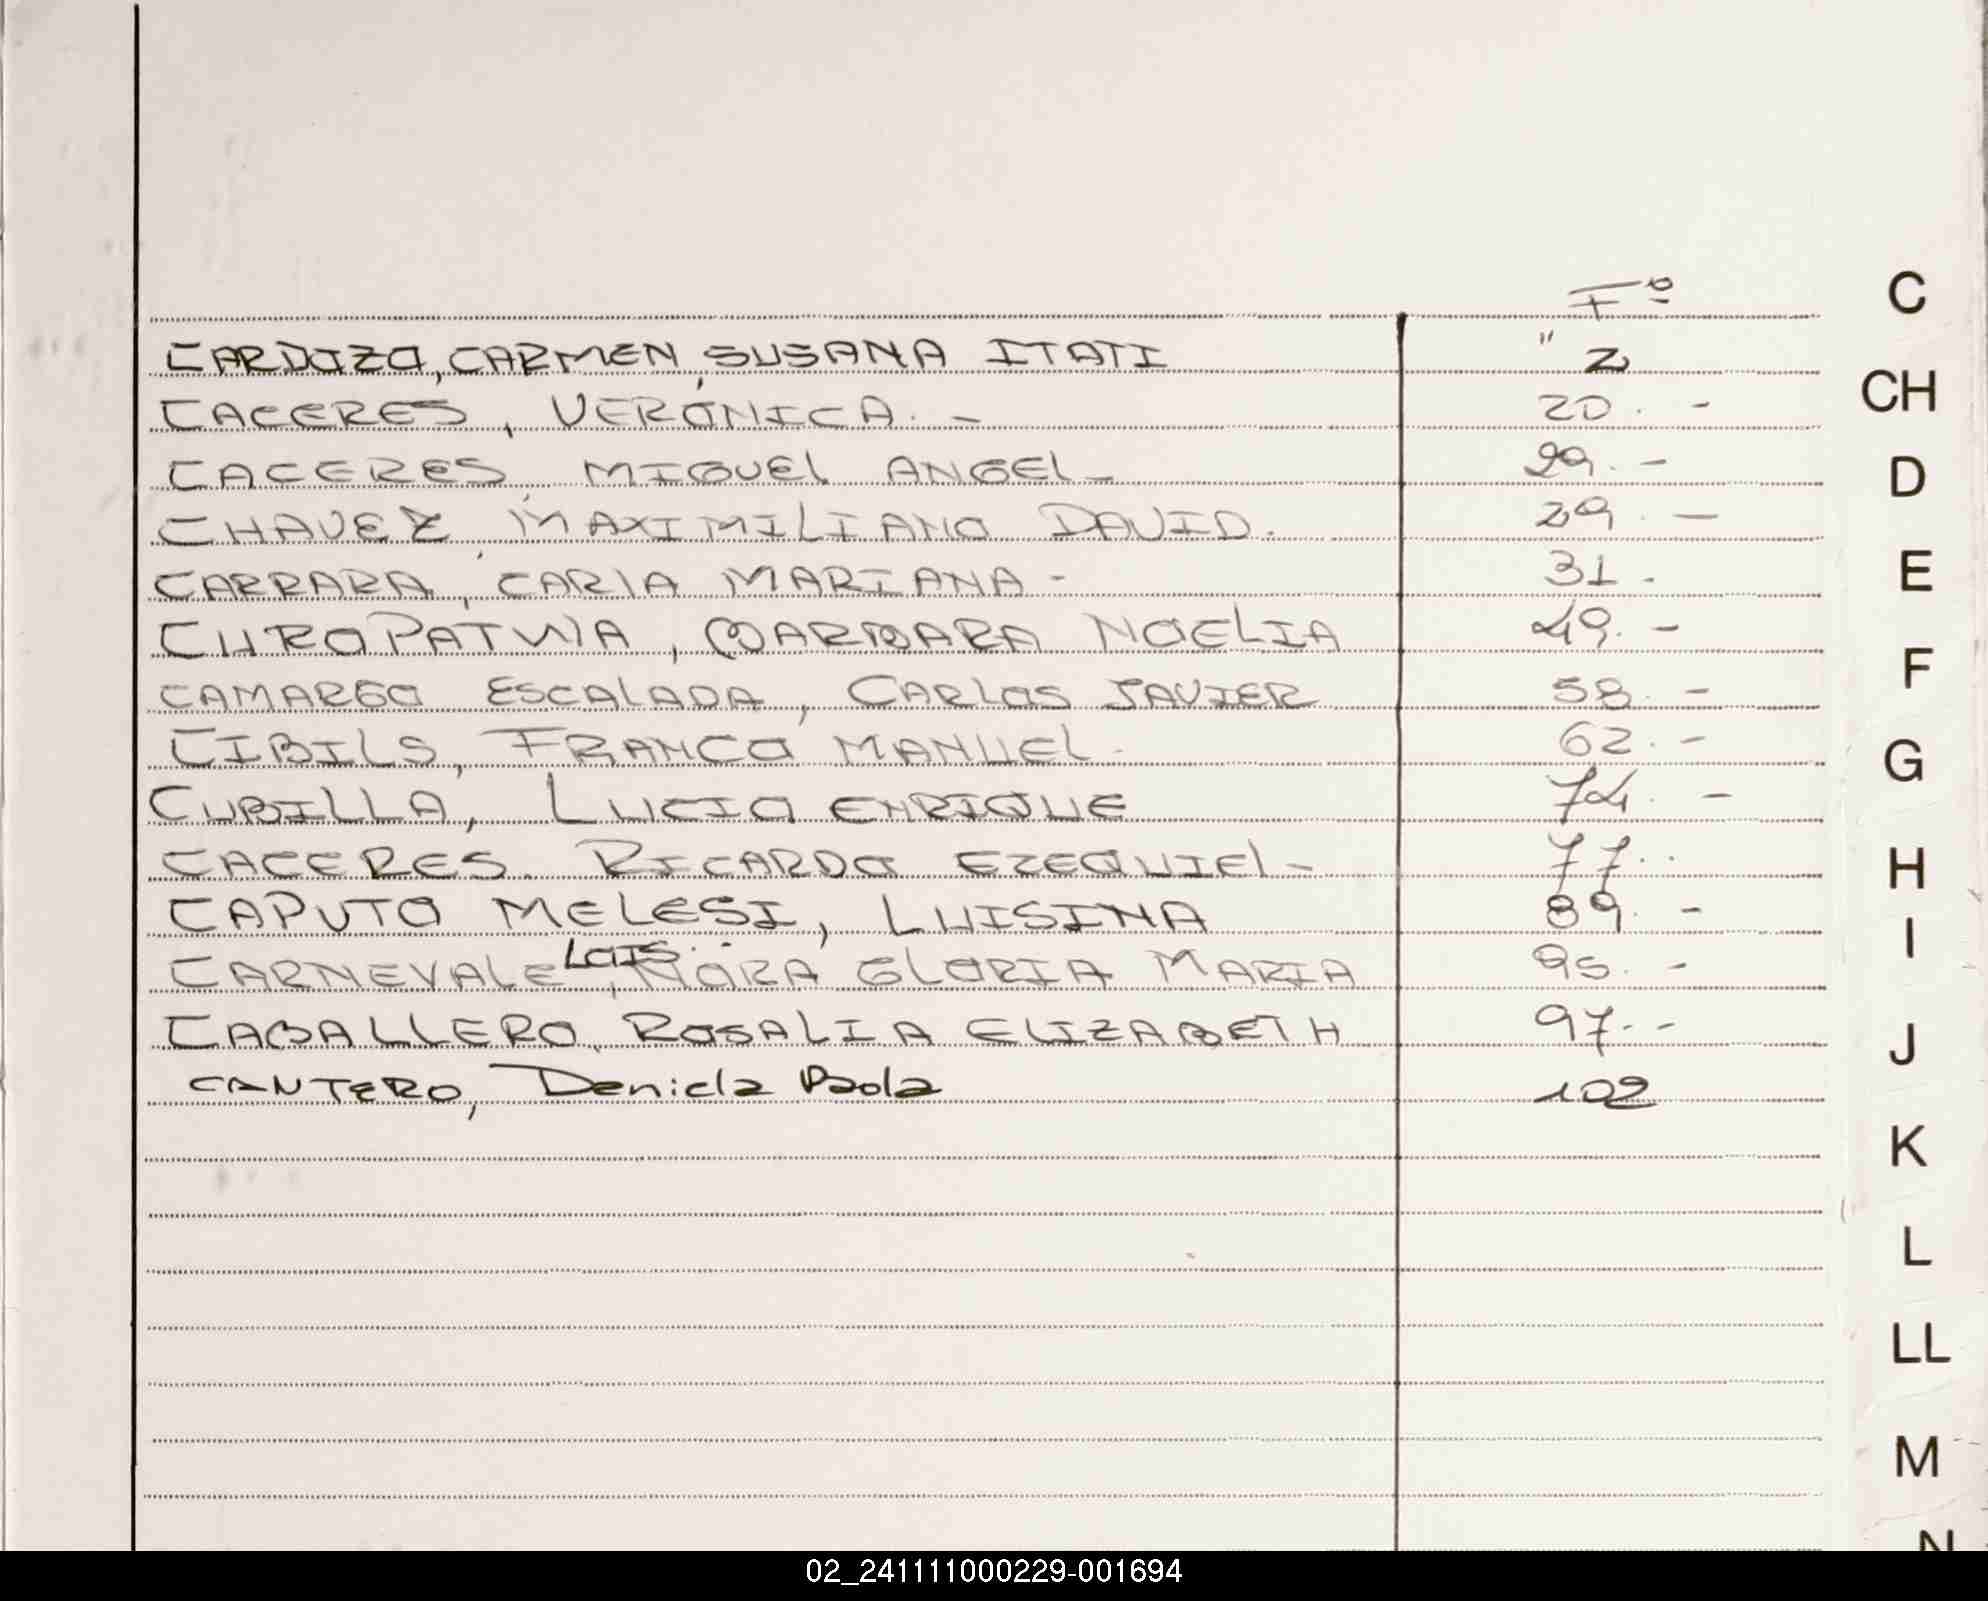 Fº
CARDOZO, CARMEN, SUSANA ITATI " 2
CACERES, VERÓNICA. - 20. -
CACERES, MIGUEL ANGEL - 29. -
CHAVEZ, MAXIMILIANO DAVID. 29. -
CARRARA, CARLA MARIANA - 31.
CUROPATWA, BARBARA NOELIA 49. -
CAMARGO ESCALADA, CARLOS JAVIER 58. -
CIBILS, FRANCO MANUEL - 62. -
CUBILLA, LUCIO ENRIQUE 74. -
CACERES. RICARDO EZEQUIEL - 77. .
CAPUTO MELESI, LUISINA 89. -
LOIS.
CARNEVALE, NORA GLORIA MARIA 95. -
CABALLERO, ROSALIA ELIZABETH 97. -
CANTERO, Daniela Paola 102
C
CH
D
E
F
G
H
I
J
K
L
LL
M
N
02_241111000229-001694